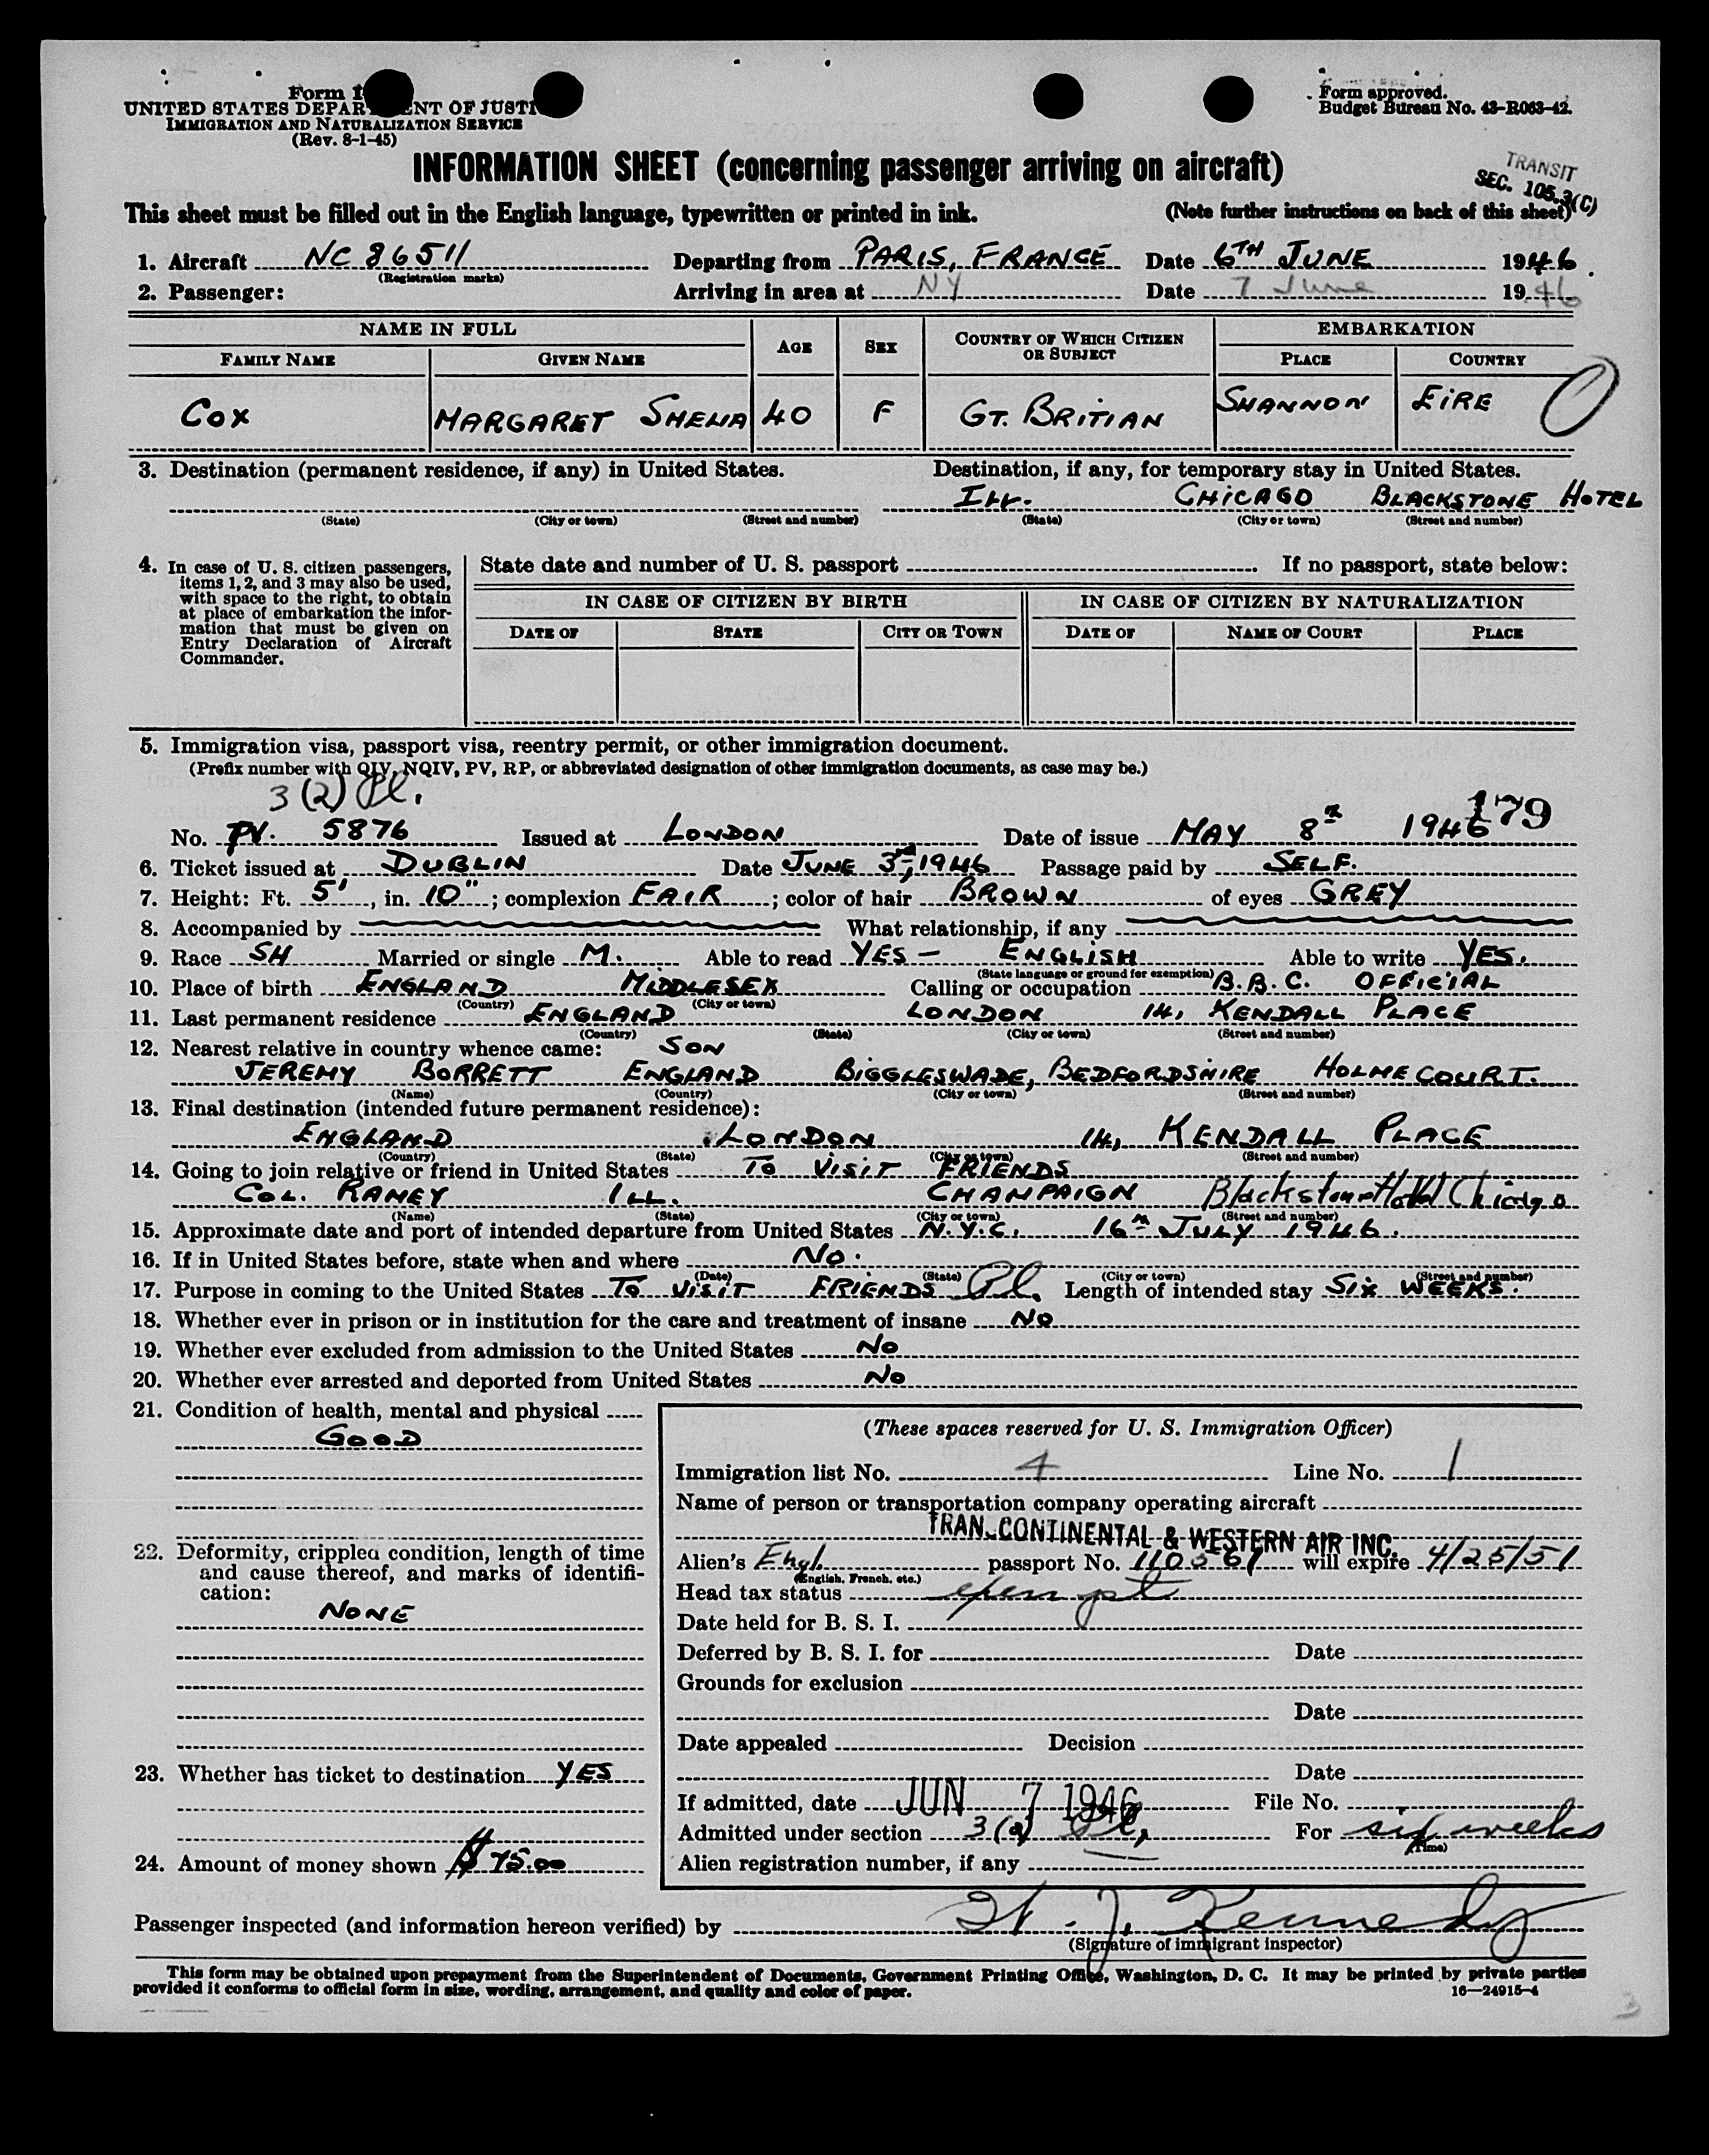 Form
UNITED STATES DEPAR ENT OF JUSTI
IMMIGRATION AND NATURALIZATION SERVICE
(Rev. 8-1-45)
Form approved.
Budget Bureau No. 43-R063-42.
INFORMATION SHEET (concerning passenger arriving on aircraft)
TRANSIT
SEC. 105.3(C)
This sheet must be filled out in the English language, typewritten or printed in ink. (Note further instructions on back of this sheet)
1. Aircraft NC 86511 Departing from PARIS, FRANCE Date 6TH JUNE 1946.
(Registration marks)
2. Passenger: Arriving in area at NY Date 7 June 1946
NAME IN FULL AGE SEX COUNTRY OF WHICH CITIZEN OR SUBJECT EMBARKATION
FAMILY NAME GIVEN NAME PLACE COUNTRY
COX MARGARET SHELIA 40 F GT. BRITIAN SHANNON EIRE 0
3. Destination (permanent residence, if any) in United States. Destination, if any, for temporary stay in United States.
ILL. CHICAGO BLACKSTONE HOTEL
(State) (City or town) (Street and number) (State) (City or town) (Street and number)
4. In case of U. S. citizen passengers, items 1, 2, and 3 may also be used, with space to the right, to obtain at place of embarkation the information that must be given on Entry Declaration of Aircraft Commander.
State date and number of U. S. passport If no passport, state below:
IN CASE OF CITIZEN BY BIRTH IN CASE OF CITIZEN BY NATURALIZATION
DATE OF STATE CITY OR TOWN DATE OF NAME OF COURT PLACE
5. Immigration visa, passport visa, reentry permit, or other immigration document.
(Prefix number with QIV, NQIV, PV, RP, or abbreviated designation of other immigration documents, as case may be.)
3 (2) Pl.
179
No. PV. 5876 Issued at LONDON Date of issue MAY 8th 1946
6. Ticket issued at DUBLIN Date JUNE 3rd, 1946 Passage paid by SELF.
7. Height: Ft. 5', in. 10"; complexion FAIR; color of hair BROWN of eyes GREY
8. Accompanied by What relationship, if any
9. Race SH Married or single M. Able to read YES - ENGLISH Able to write YES.
(State language or ground for exemption)
10. Place of birth ENGLAND MIDDLESEX Calling or occupation B.B.C. OFFICIAL
(Country) (City or town)
11. Last permanent residence ENGLAND LONDON 14, KENDALL PLACE
(Country) (State) (City or town) (Street and number)
12. Nearest relative in country whence came: SON
JEREMY BORRETT ENGLAND BIGGLESWADE, BEDFORDSHIRE HOLME COURT.
(Name) (Country) (City or town) (Street and number)
13. Final destination (intended future permanent residence):
ENGLAND LONDON 14, KENDALL PLACE
(Country) (State) (City or town) (Street and number)
14. Going to join relative or friend in United States TO VISIT FRIENDS
COL. RANEY ILL. CHAMPAIGN Blackstone Hotel Chicago
(Name) (State) (City or town) (Street and number)
15. Approximate date and port of intended departure from United States N.Y.C. 16th JULY 1946.
16. If in United States before, state when and where NO.
(Date) (State) (City or town) (Street and number)
17. Purpose in coming to the United States TO VISIT FRIENDS Pl. Length of intended stay SIX WEEKS.
18. Whether ever in prison or in institution for the care and treatment of insane NO
19. Whether ever excluded from admission to the United States NO
20. Whether ever arrested and deported from United States NO
21. Condition of health, mental and physical
GOOD
22. Deformity, crippled condition, length of time and cause thereof, and marks of identification:
NONE
23. Whether has ticket to destination YES
24. Amount of money shown $75.00
(These spaces reserved for U. S. Immigration Officer)
Immigration list No. 4 Line No. 1
Name of person or transportation company operating aircraft
TRANSCONTINENTAL & WESTERN AIR INC.
Alien's Engl. passport No. 110561 will expire 4/25/51
(English, French, etc.)
Head tax status exempt
Date held for B. S. I.
Deferred by B. S. I. for Date
Grounds for exclusion
Date
Date appealed Decision
Date
If admitted, date JUN 7 1946 File No.
Admitted under section 3(2) Pl, For six weeks
(Time)
Alien registration number, if any
Passenger inspected (and information hereon verified) by H. J. Kennedy
(Signature of immigrant inspector)
This form may be obtained upon prepayment from the Superintendent of Documents, Government Printing Office, Washington, D. C. It may be printed by private parties
provided it conforms to official form in size, wording, arrangement, and quality and color of paper. 16—24915-4
3